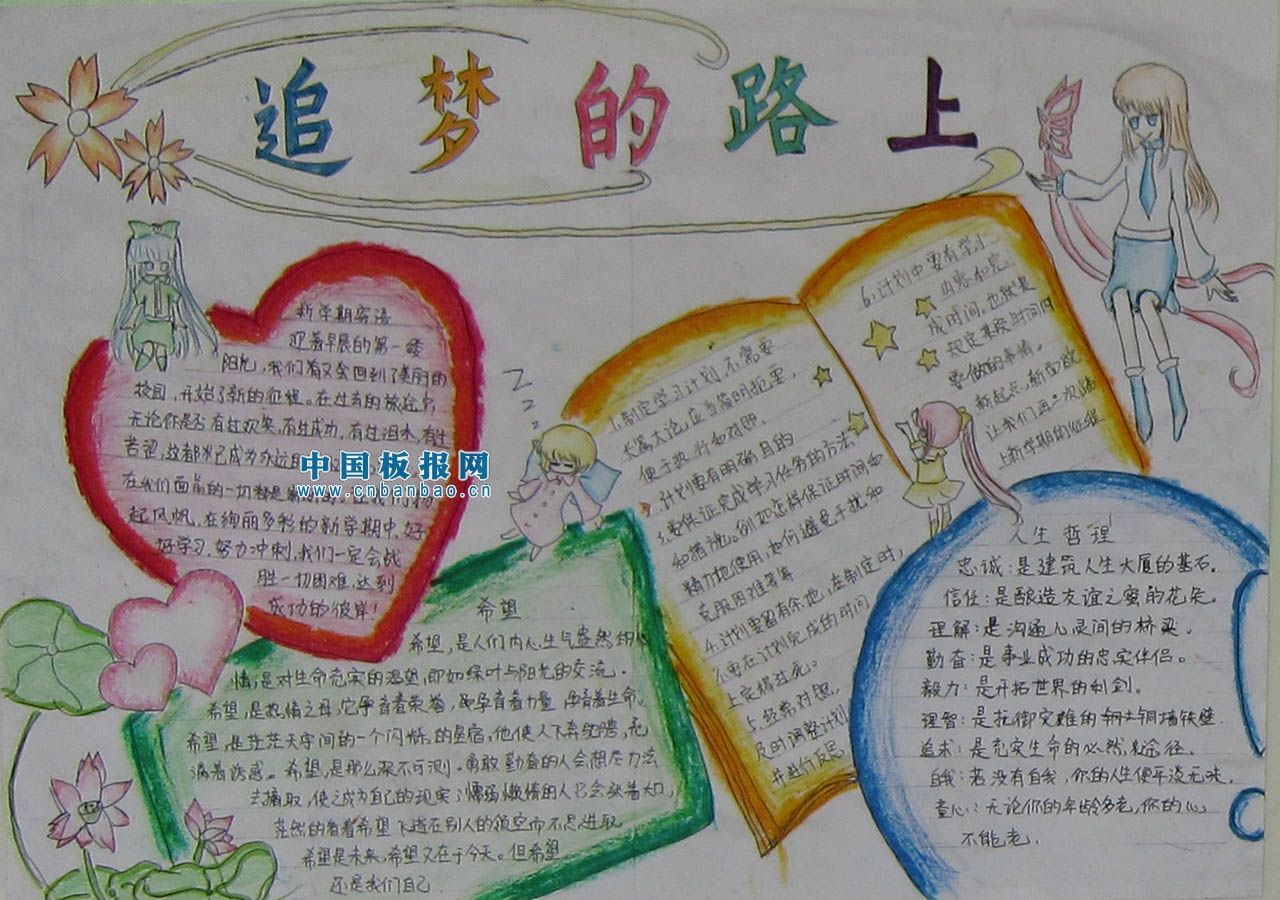 追梦的路上
新学期寄语
迎着早晨的第一缕
阳光，我们有又会回到了美丽的
校园，开始了新的征程。在过去的旅途中，
无论你是否有过欢笑，有过成功，有过泪水，有过
苦涩，这都将已成为永远的
在我们面前的一切都是
起风帆，在绚丽多彩的新学期中，好
好学习，努力冲刺，我们一定会战
胜一切困难，达到
成功的彼岸！
中国板报网
www.cnbanbao.cn
希望
希望，是人们内心生气盎然的心
情；是对生命充实的渴望，即如绿叶与阳光的交流。
希望，是热情之母，它孕育着荣誉，孕育着力量，孕育着生命。
希望，是茫茫天宇间的一个闪烁的星宿，他使人下
满着诱惑。希望，是那么深不可测。勇敢勤奋的人会想尽方法
去摘取，使之成为自己的现实；懦弱懒惰的人只会
茫然的看着希望飞逝在别人的领空而不思进取
希望是未来，希望又在于今天。但希望
还是我们自己
1.制定学习计划，不需要
长篇大论，应当简明扼要，
便于执行和对照。
2.计划要有明确目的
3.要保证完成学习任务的方法
和措施。例如怎样保证时间和
精力地使用，如何避免干扰和
克服困难等等
4.计划要留有余地，在制定时，
不要在计划完成的时间
上定得过死。
5.经常对照，
及时调整计划
并进行反思
6.计划中要有学习
内容和完
成时间。也就是
规定某段时间内
要做的事情。
新起点，新面貌
让我们再一次踏
上新学期的征程
人生哲理
忠诚：是建筑人生大厦的基石。
信任：是酿造友谊之蜜的花朵。
理解：是沟通心灵间的桥梁。
勤奋：是事业成功的忠实伴侣。
毅力：是开拓世界的利剑。
理智：是抵御灾难的铜土铜墙铁壁
追求：是充实生命的必然途径。
自我：若没有自我，你的人生便平淡无味。
童心：无论你的年龄多老，你的心
不能老．